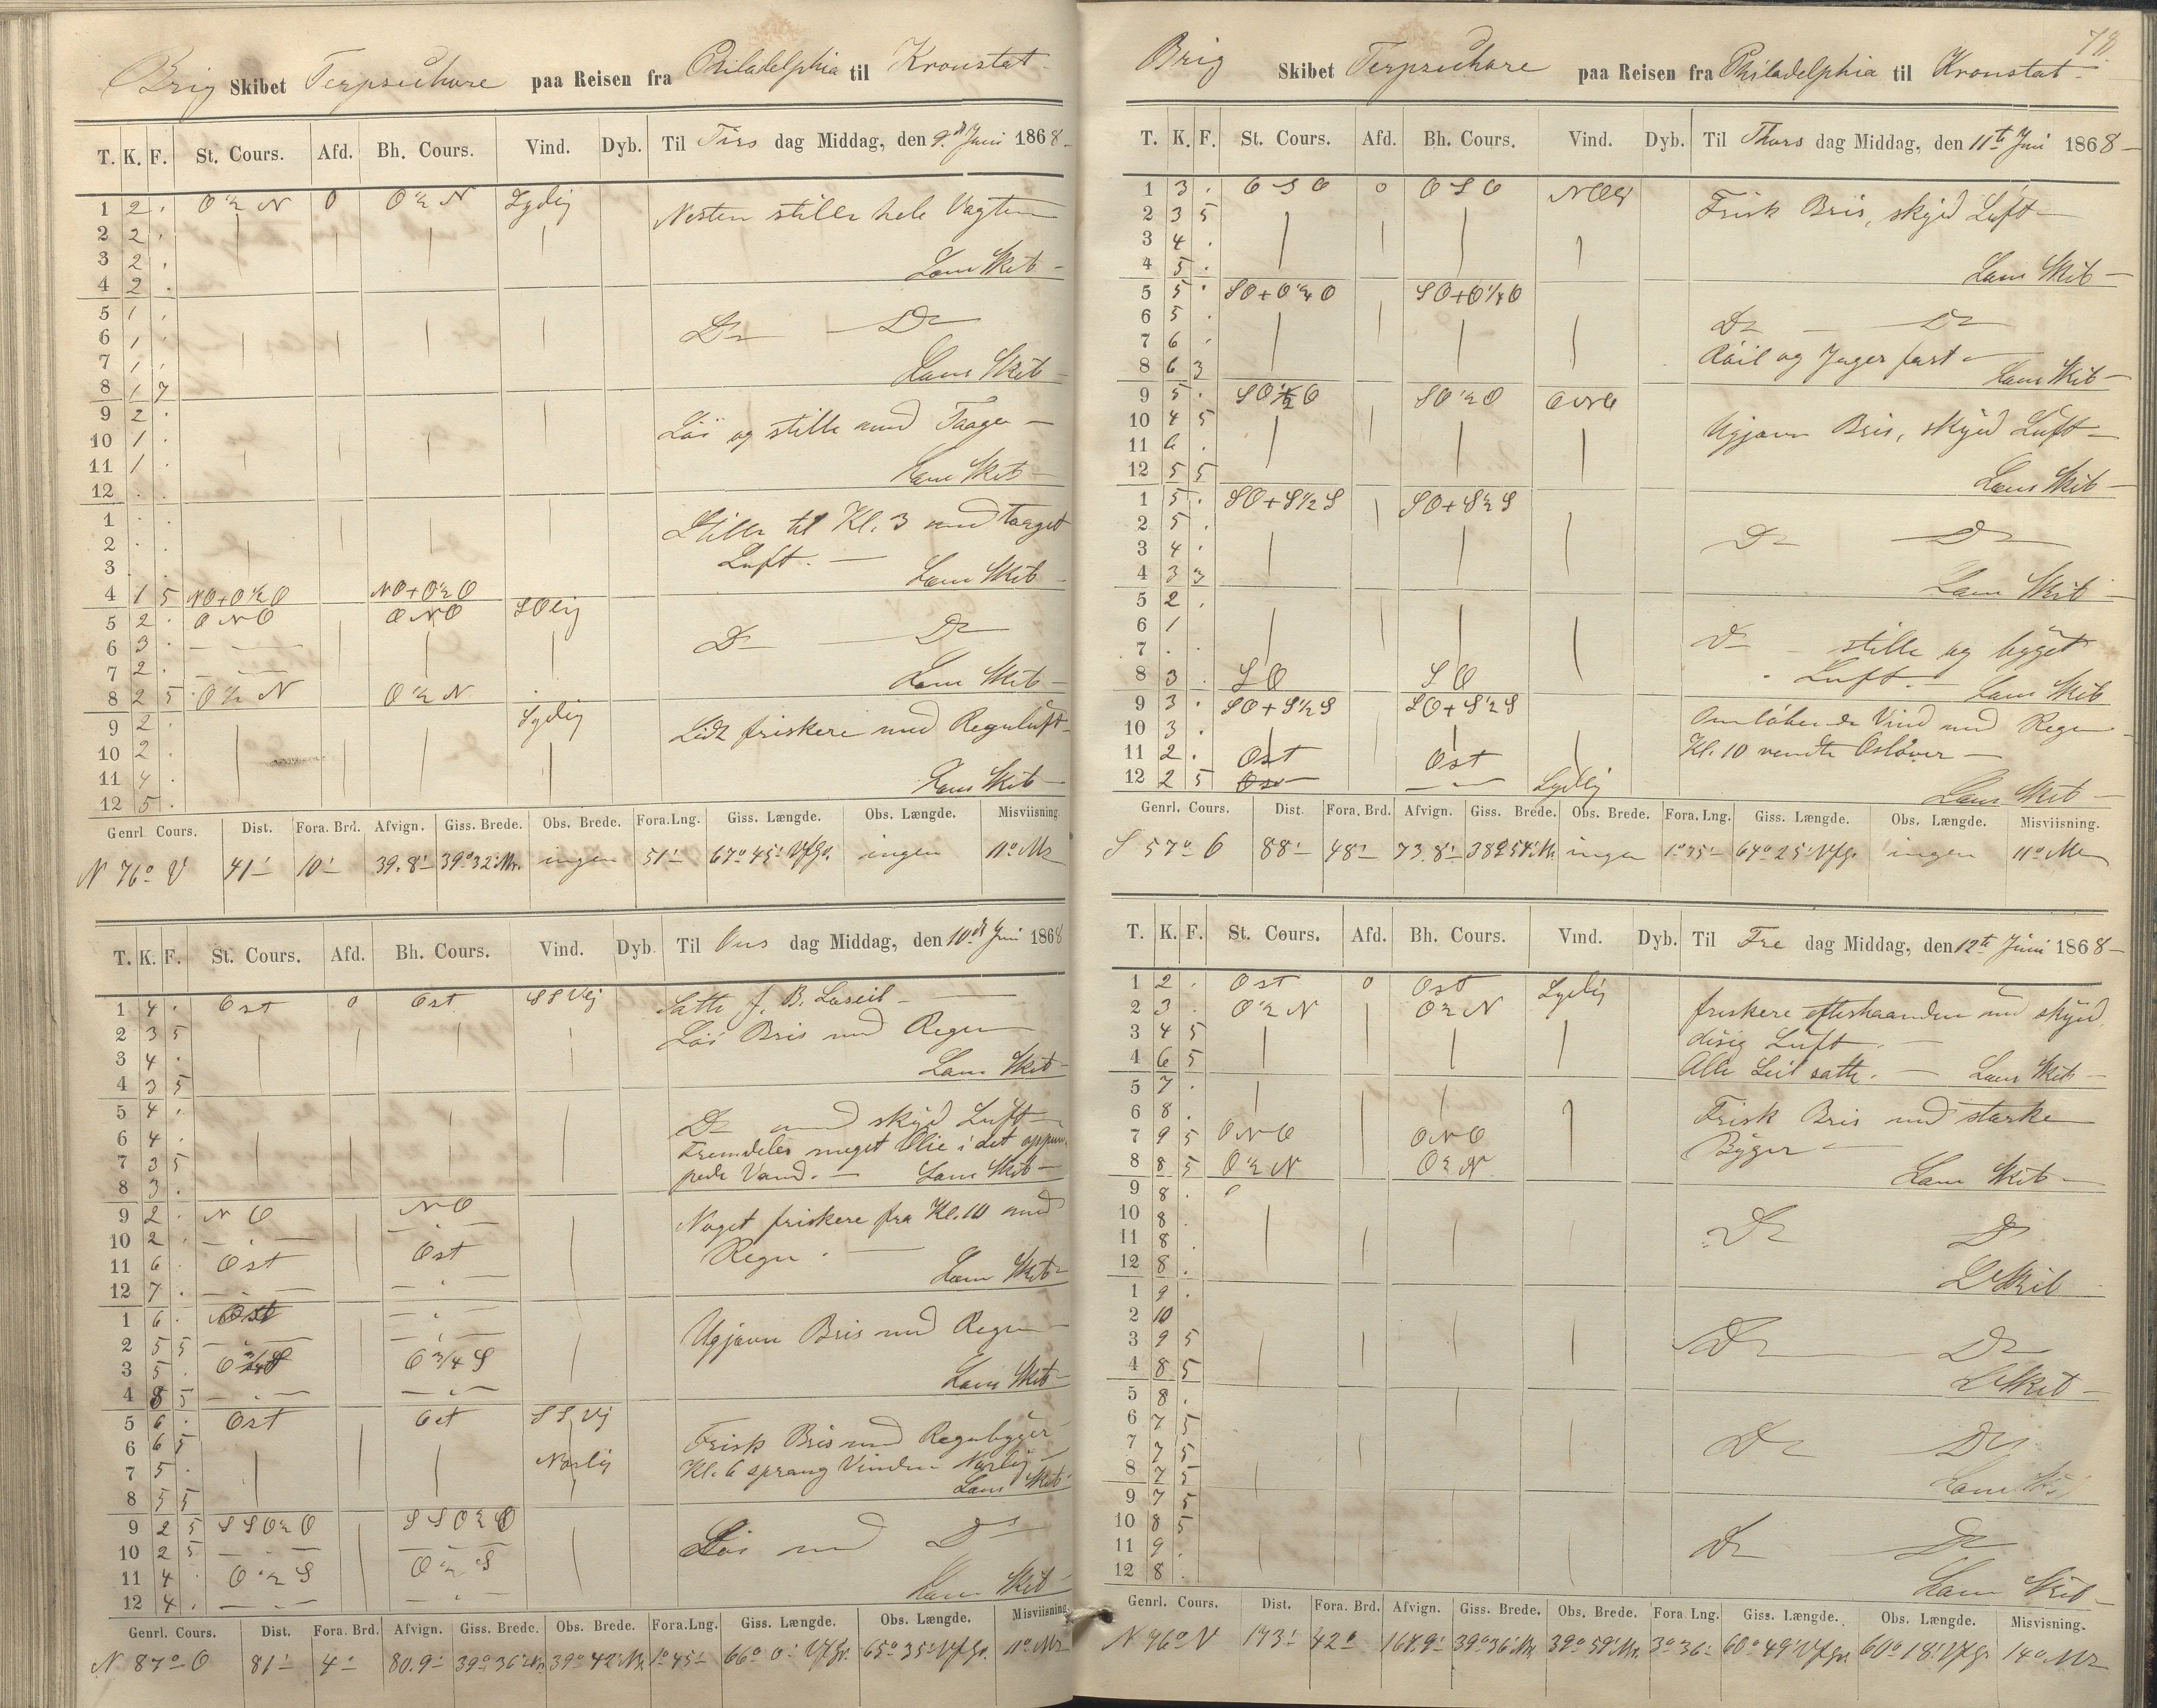 Brig Skibet Terpsichore paa Reisen fra Philadelphia til Kronstat.
T. K. F. St. Cours. Afd. Bh. Cours. Vind. Dyb. Til Tirs dag Middag, den 9d Juni 1868
1 2 . O½N O O½N Sydlig Nesten stille hele Vagten
2 2 .
3 2 . Læns Skib
4 2 .
5 1 .
6 1 . Do Do
7 1 . Læns Skib
8 1 7
9 2 .
10 1 . Løi og stille med Taage
11 1 . Læns Skib
12 . .
1 . . Stille til Kl. 3 med taaget
2 . . Luft.
3 . . Læns Skib
4 1 5 NO+O½O NO+O½O
5 2 . ONO ONO SOlig
6 3 . Do Do
7 2 . Læns Skib
8 2 5 O½N O½N
9 2 . Sydlig Lidt friskere med Regnluft
10 2 .
11 4 . Læns Skib
12 5 .
Genrl. Cours. Dist. Fora. Brd. Afvign. Giss. Brede. Obs. Brede. Fora. Lng. Giss. Længde. Obs. Længde. Misviisning.
N 76° V 41' 10' 39.8' 39° 32' Nr. ingen 51' 67° 45' V f Gr. ingen 11° Mr
T. K. F. St. Cours. Afd. Bh. Cours. Vind. Dyb. Til Ons dag Middag, den 10d Juni 1868
1 4 . Ost O Ost SSVlj Satte f. B. Læseil
2 3 5 Løi Bris med Regn
3 4 .
4 3 5 Læns Skib
5 4 . Do med skyed Luft
6 4 . Fremdeles meget Olie i det oppum
7 3 5 pede Vand. Læns Skib
8 3 .
9 2 . NO NO Noget friskere fra Kl. 10 med
10 2 . Regn.
11 6 . Ost Ost
12 7 . Læns Skib
1 6 . Ost
2 5 5 Ugjævn Bris med Regn
3 5 . O¾S O¾S
4 8 5 Læns Skib
5 6 . Ost Ost SSVj
6 6 5 Frisk Bris med Regnbyger
7 5 . Norlig Kl. 6 sprang Vinden Norlig
8 5 5 Læns Skib
9 2 5 SSO½O SSO½O
10 2 5 Løi med Do
11 4 . O½S O½S
12 4 . Læns Skib
Genrl. Cours. Dist. Fora. Brd. Afvign. Giss. Brede. Obs. Brede. Fora. Lng. Giss. Længde. Obs. Længde. Misviisning.
N 87° O 81' 4' 80.9' 39° 36' Nr. 39° 42' Nr. 1° 45' 66° 0' V f Gr. 65° 35' V f Gr. 11° Mr
78
Brig Skibet Terpsichore paa Reisen fra Philadelphia til Kronstat.
T. K. F. St. Cours. Afd. Bh. Cours. Vind. Dyb. Til Thors dag Middag, den 11te Juni 1868
1 3 . OSO O OSO Frisk Bris, skyed Luft
2 3 5
3 4 .
4 5 . Læns Skib
5 5 . SO+O¼O SO+O¼O
6 5 . Do Do
7 6 . Røil og Jager fast
8 6 3 Læns Skib
9 5 . SO½O SO½O
10 4 5 Ugjævn Bris, skyed Luft
11 6 .
12 5 5 Læns Skib
1 5 . SO+S½S SO+S½S
2 5 . Do Do
3 4 .
4 3 3 Læns Skib
5 2 .
6 1 Do stille og byget
7 . . Luft.
8 3 . SO SO Læns Skib
9 3 . SO+S½S SO+S½S Omløbende Vind med Regn
10 3 . Kl. 10 vendte Ostover
11 2 . Ost Ost
12 2 5 Ost Sydlig Læns Skib
Genrl. Cours. Dist. Fora. Brd. Afvign. Giss. Brede. Obs. Brede. Fora. Lng. Giss. Længde. Obs. Længde. Misviisning.
S 57° O 88' 48' 73.8' 38° 54' Nr. ingen 1° 35' 64° 25' V f Gr. ingen 11° Mr
T. K. F. St. Cours. Afd. Bh. Cours. Vind. Dyb. Til Fre dag Middag, den 12te Juni 1868
1 2 . Ost O Ost Sydlig friskere efterhaanden med skyed,
2 3 . O½N O½N disig Luft.
3 4 5 Alle Seil satte. Læns Skib
4 6 5
5 7 . Frisk Bris med starke
6 8 . Byger
7 9 5 ONO ONO
8 8 5 O½N O½N Læns Skib
9 8 .
10 8 . Do Do
11 8 .
12 8 . L Skib
1 9 .
2 10
3 9 5 Do Do
4 8 5 L Skib
5 8 .
6 7 5 Do Do
7 7 5
8 7 5 Læns Skib
9 7 5
10 8 5
11 9 . Do Do
12 8 . Læns Skib
Genrl. Cours. Dist. Fora. Brd. Afvign. Giss. Brede. Obs. Brede. Fora. Lng. Giss. Længde. Obs. Længde. Misvisning.
N 76° V 173' 42' 167.9' 39° 36' Nr. 39° 59' Nr. 3° 36' 60° 49' V f Gr. 60° 18' V f Gr. 14° Mr